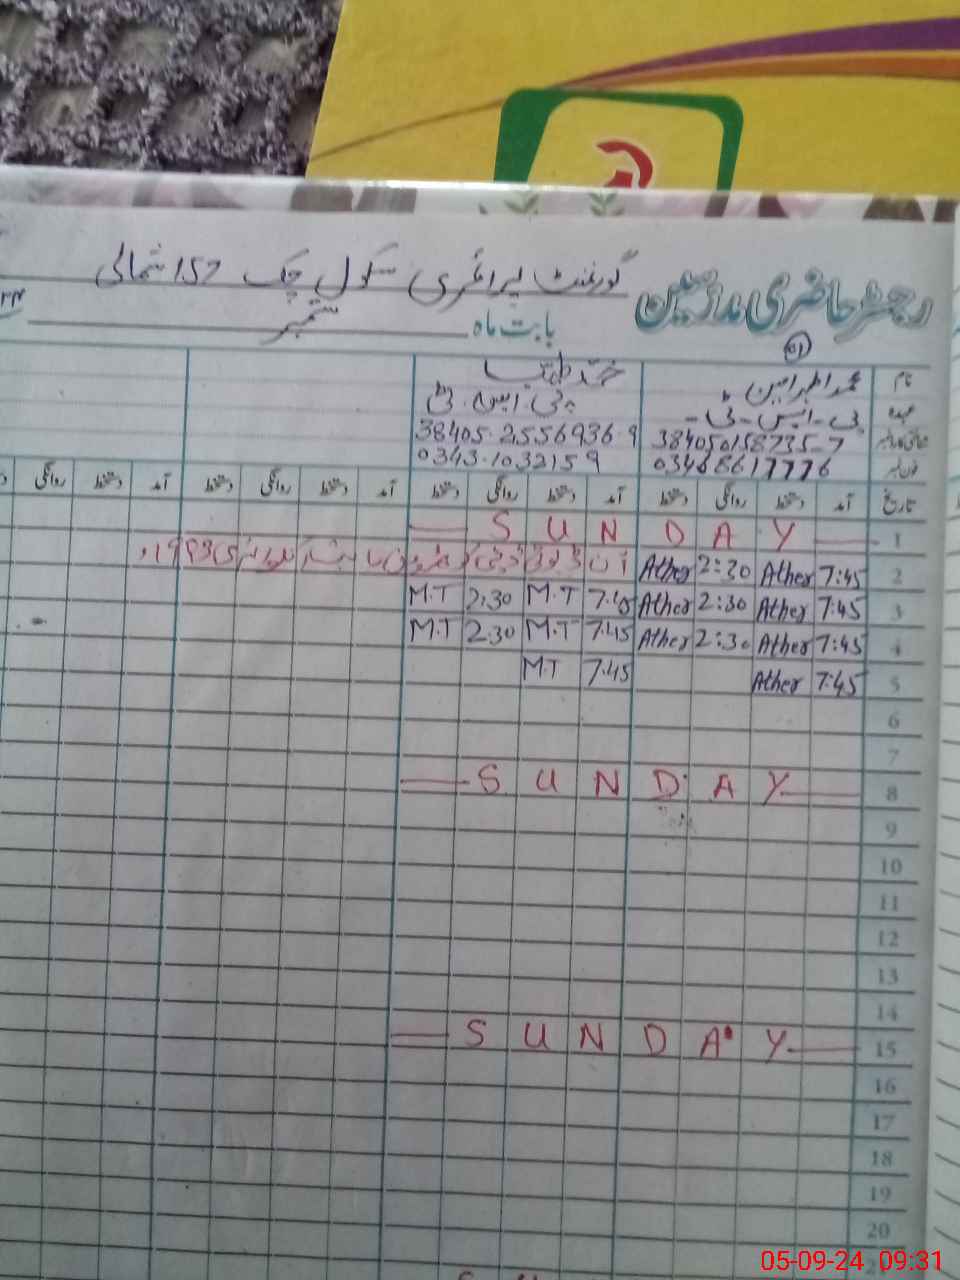 رجسٹر حاضری ملازمین گورنمنٹ پرائمری سکول چک 157 شمالی
بابت ماہ ستمبر
نام محمد اطہر امین محمد طیب
عہدہ پی۔ایس۔ٹی۔ پی۔ایس۔ٹی
384050158735-7 38405-2556936-9
03468617776 0343-1032159
تاریخ آمد دستخط روانگی دستخط آمد دستخط روانگی دستخط آمد دستخط روانگی دستخط آمد دستخط روانگی
1 SUNDAY
2 7:45 Ather 2:30 Ather
3 7:45 Ather 2:30 Ather 7:45 M.T 2:30 M.T
4 7:45 Ather 2:30 Ather 7:45 M.T 2:30 M.T
5 7:45 Ather 7:45 M.T
6
7
8 SUNDAY
9
10
11
12
13
14
15 SUNDAY
16
17
18
19
20
05-09-24 09:31